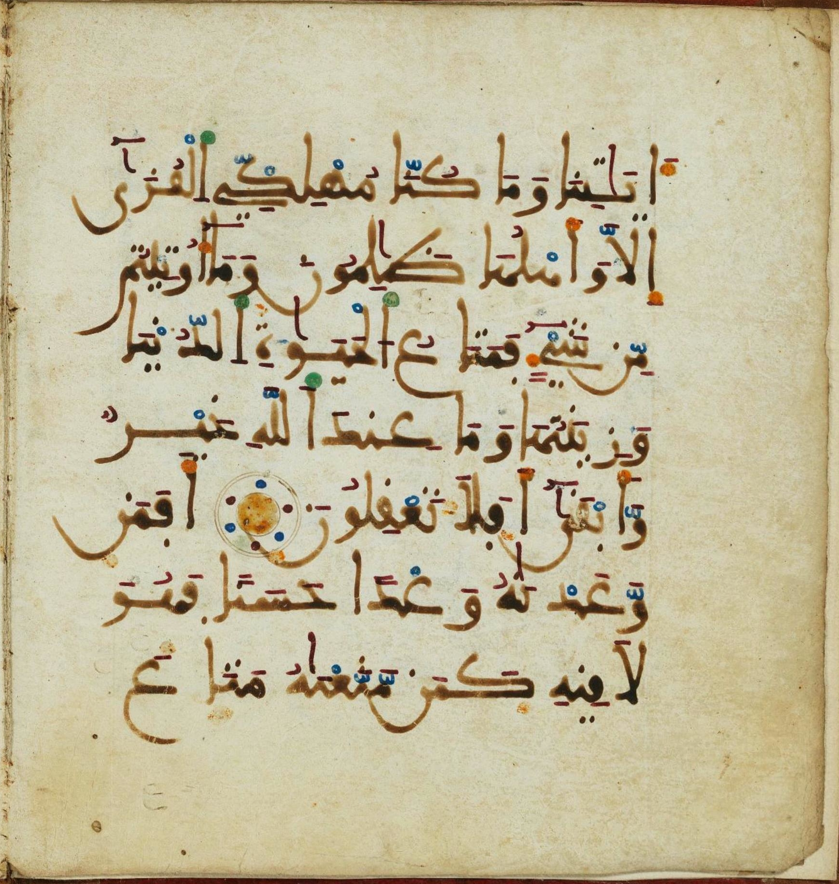 ءَايَٰتِنَا وَمَا كُنَّا مُهْلِكِي اَ۬لْقُرَىٰٓ
إِلَّا وَأَهْلُهَا ظَٰلِمُونَ وَمَآ أُوتِيتُم
مِّن شَيْءٍ فَمَتَاعُ اَ۬لْحَيَوٰةِ اِ۬لدُّنْيَا
وَزِينَتُهَا وَمَا عِندَ اَ۬للَّهِ خَيْرٌ
وَأَبْقَىٰٓ أَفَلَا تَعْقِلُونَ أَفَمَن
وَّعَدْنَٰهُ وَعْدًا حَسَنًا فَهُوَ
لَاقِيهِ كَمَن مَّتَّعْنَٰهُ مَتَاعَ